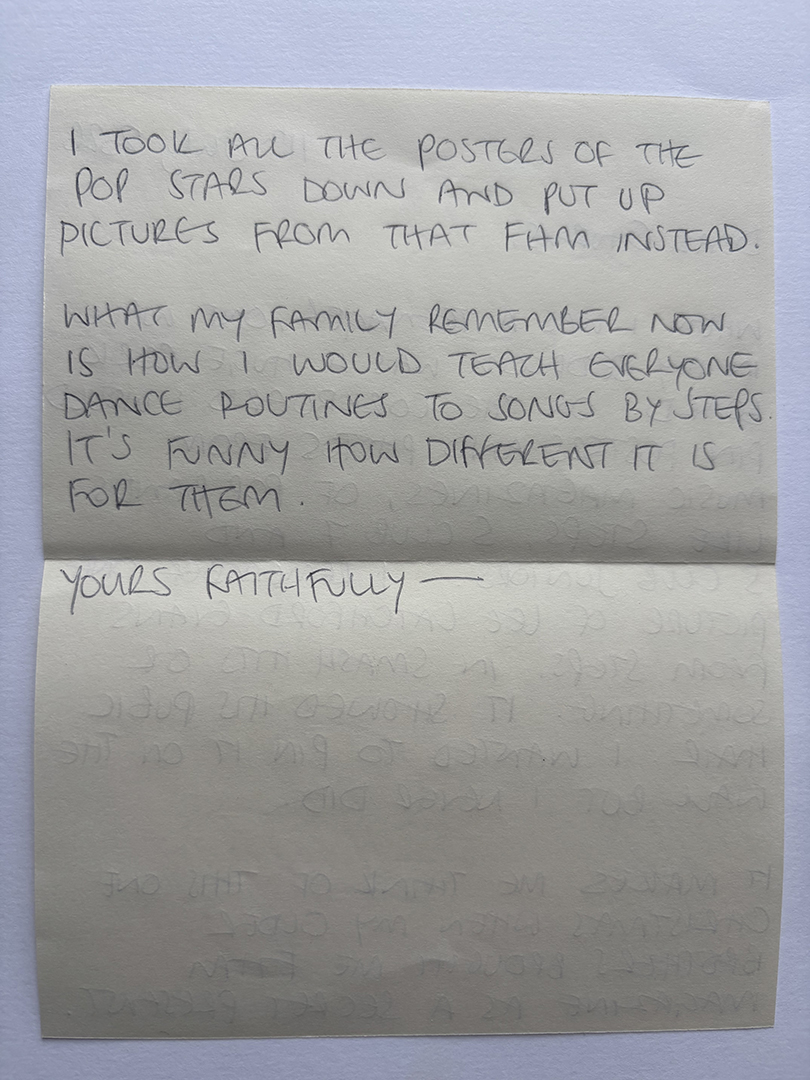 I TOOK ALL THE POSTERS OF THE
POP STARS DOWN AND PUT UP
PICTURES FROM THAT FHM INSTEAD.
WHAT MY FAMILY REMEMBER NOW
IS HOW I WOULD TEACH EVERYONE
DANCE ROUTINES TO SONGS BY STEPS.
IT'S FUNNY HOW DIFFERENT IT IS
FOR THEM.
YOURS FAITHFULLY —